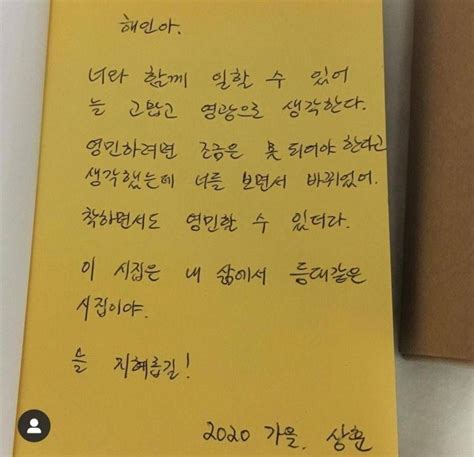 해인아.
너와 함께 일할 수 있어
늘 고맙고 영광으로 생각한다.
영민하려면 조금은 못 되어야 한다고
생각했는데 너를 보면서 바뀌었어.
착하면서도 영민할 수 있더라.
이 시집은 내 삶에서 등대같은
시집이야.
늘 지혜롭길!
2020 가을, 상훈